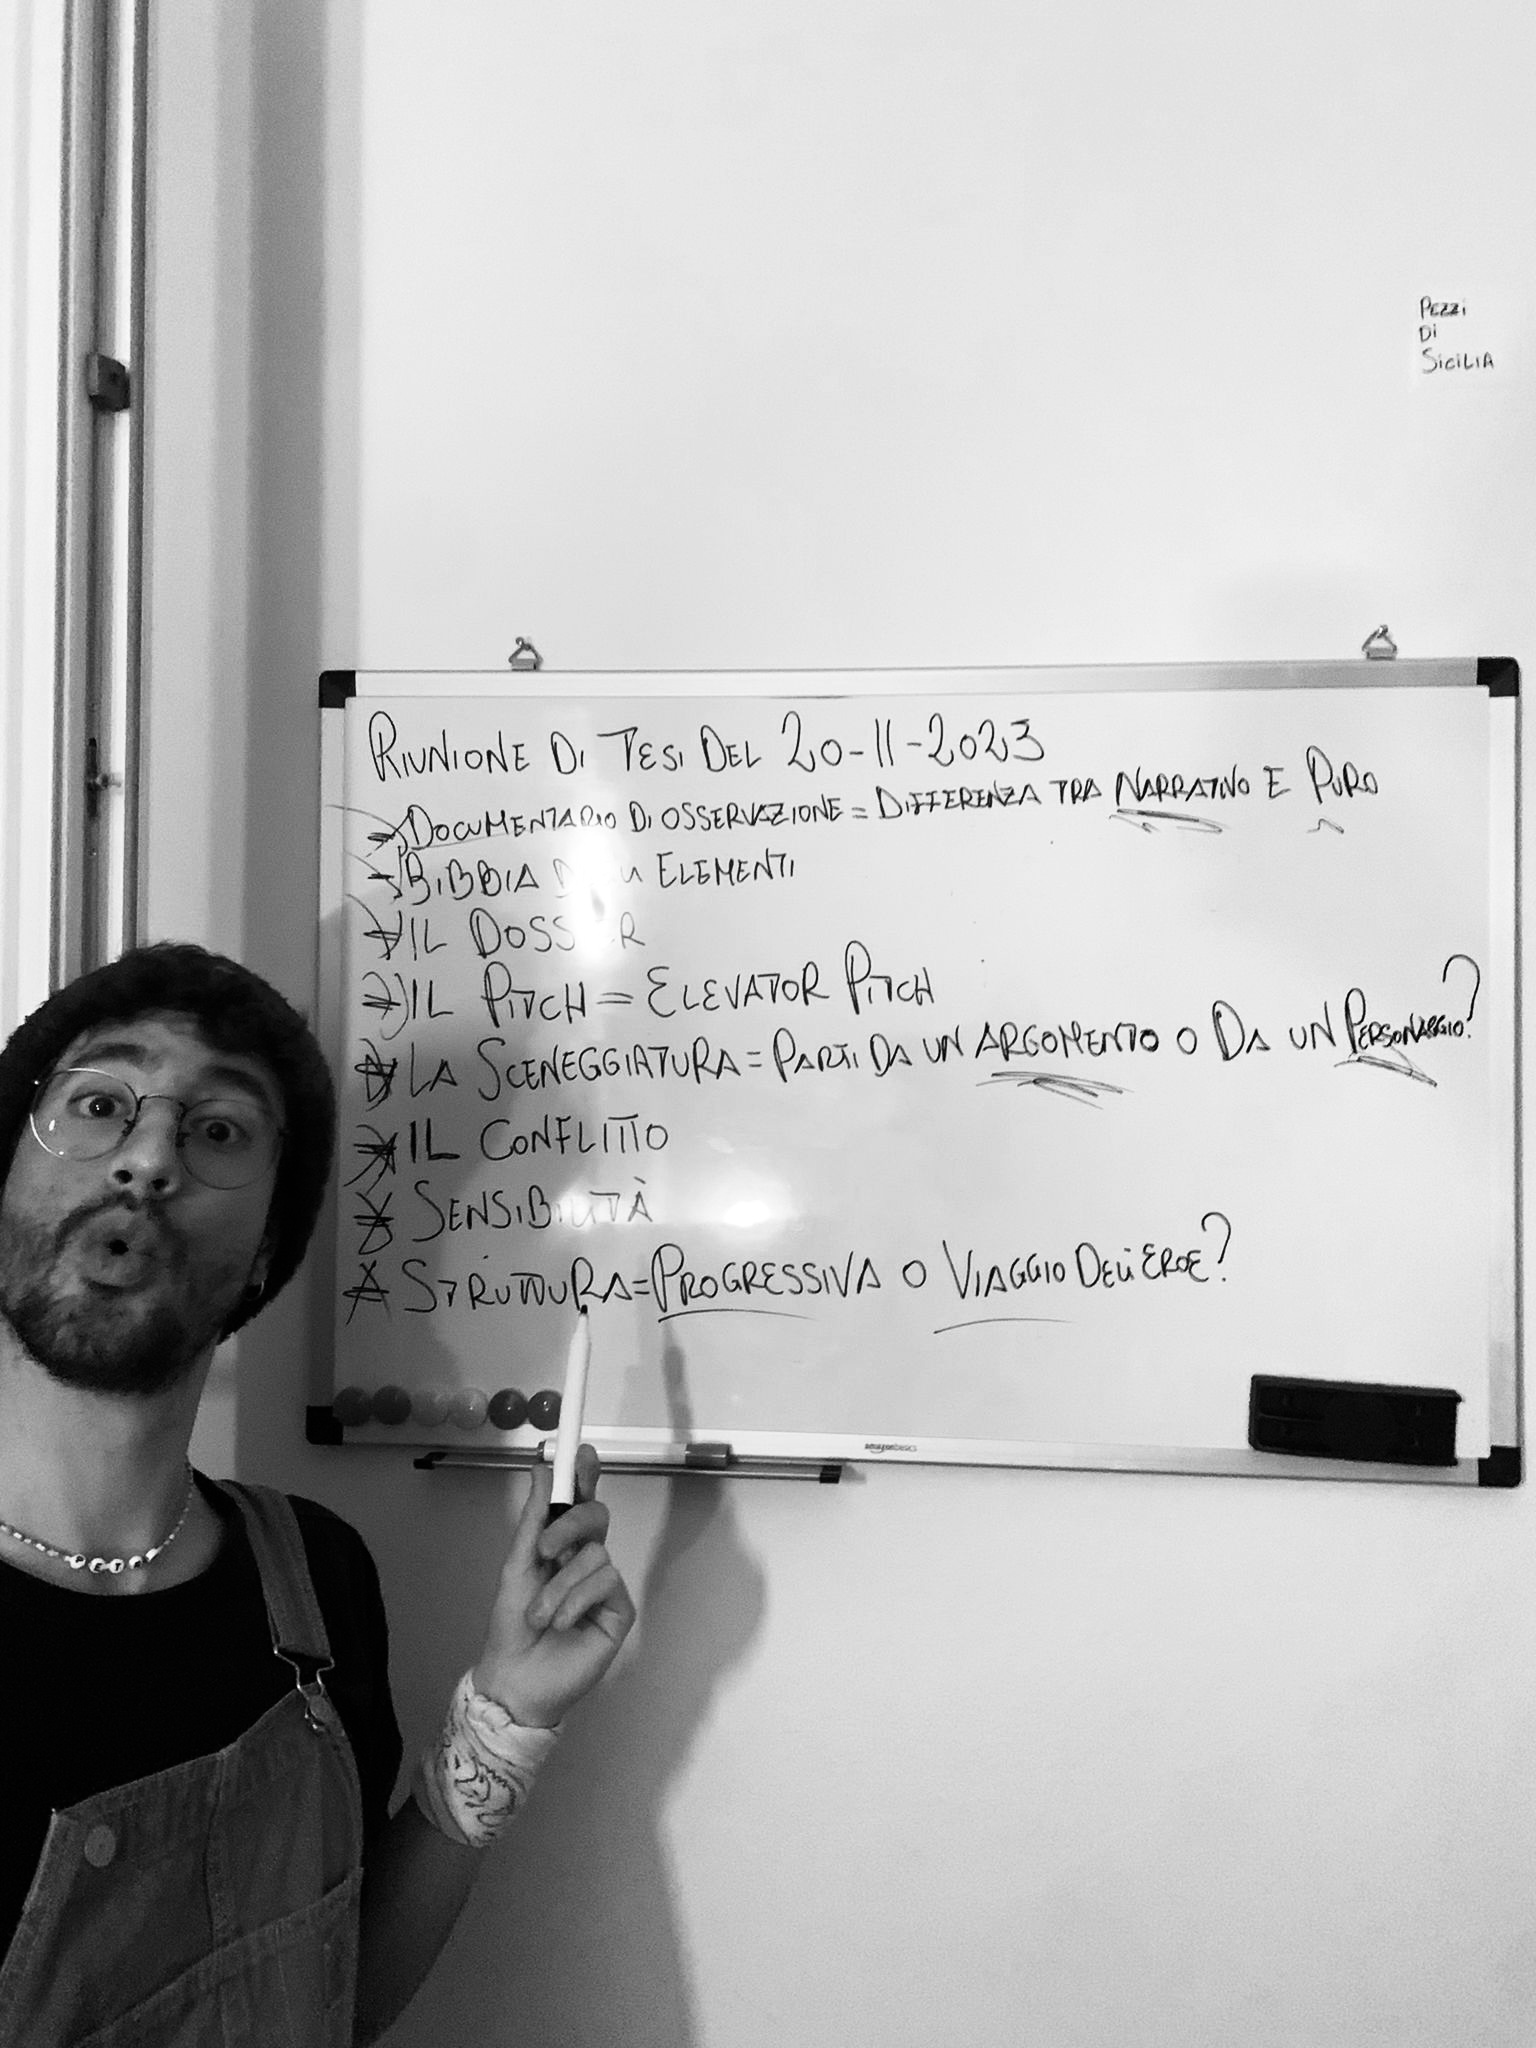 PEZZi
Di
SiCiLiA
RIUNIONE DI TESI DEL 20-11-2023
DOCUMENTARIO DI OSSERVAZIONE = DIFFERENZA TRA NARRATIVO E PURO
BIBBIA ELEMENTI
IL DOSSIER
IL PITCH = ELEVATOR PITCH
LA SCENEGGIATURA = PARTI DA UN ARGOMENTO O DA UN PERSONAGGIO?
IL CONFLITTO
SENSIBILITÀ
STRUTTURA = PROGRESSIVA O VIAGGIO DELL'EROE?
amazonbasics